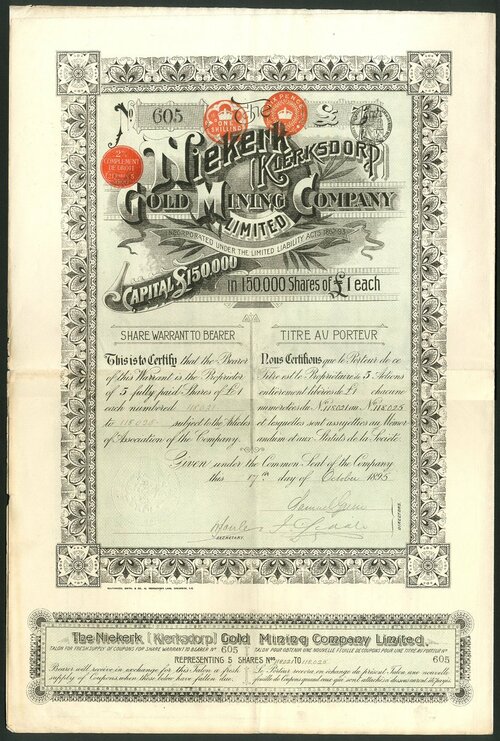 No 605 £5
ONE SHILLING
SIX PENCE
COMPLEMENT DE DROIT
Niekerk
KLERKSDORP
GOLD MINING COMPANY
LIMITED
INCORPORATED UNDER THE LIMITED LIABILITY ACTS
CAPITAL £150,000
in 150.000 Shares of £1 each
SHARE WARRANT TO BEARER
This is to Certify that the Bearer
of this Warrant is the Proprietor
of 5 fully paid Shares of £1
each numbered 118021
to 118025 subject to the Articles
of Association of the Company.
TITRE AU PORTEUR
Nous Certifions que le Porteur de ce
Titre est le Propriétaire de 5 Actions
entièrement libérées de £1 chacune
numérotées du No 118021 au No 118025
et lesquelles sont assujetties au Memor-
andum et aux Statuts de la Société.
Given under the Common Seal of the Company
this 17th day of October 1895
DIRECTORS.
SECRETARY.
The Niekerk (Klerksdorp) Gold Mining Company Limited.
TALON FOR FRESH SUPPLY OF COUPONS FOR SHARE WARRANT TO BEARER No 605
TALON POUR OBTENIR UNE NOUVELLE FEUILLE DE COUPONS POUR UNE TITRE AU PORTEUR No 605
REPRESENTING 5 SHARES Nos 118021 TO 118025
Bearer will receive in exchange for this Talon a fresh
supply of Coupons when those below have fallen due.
Le Porteur recevra en échange du présent Talon une nouvelle
feuille de Coupons quand ceux qui sont attachés ci dessous auront été payés.